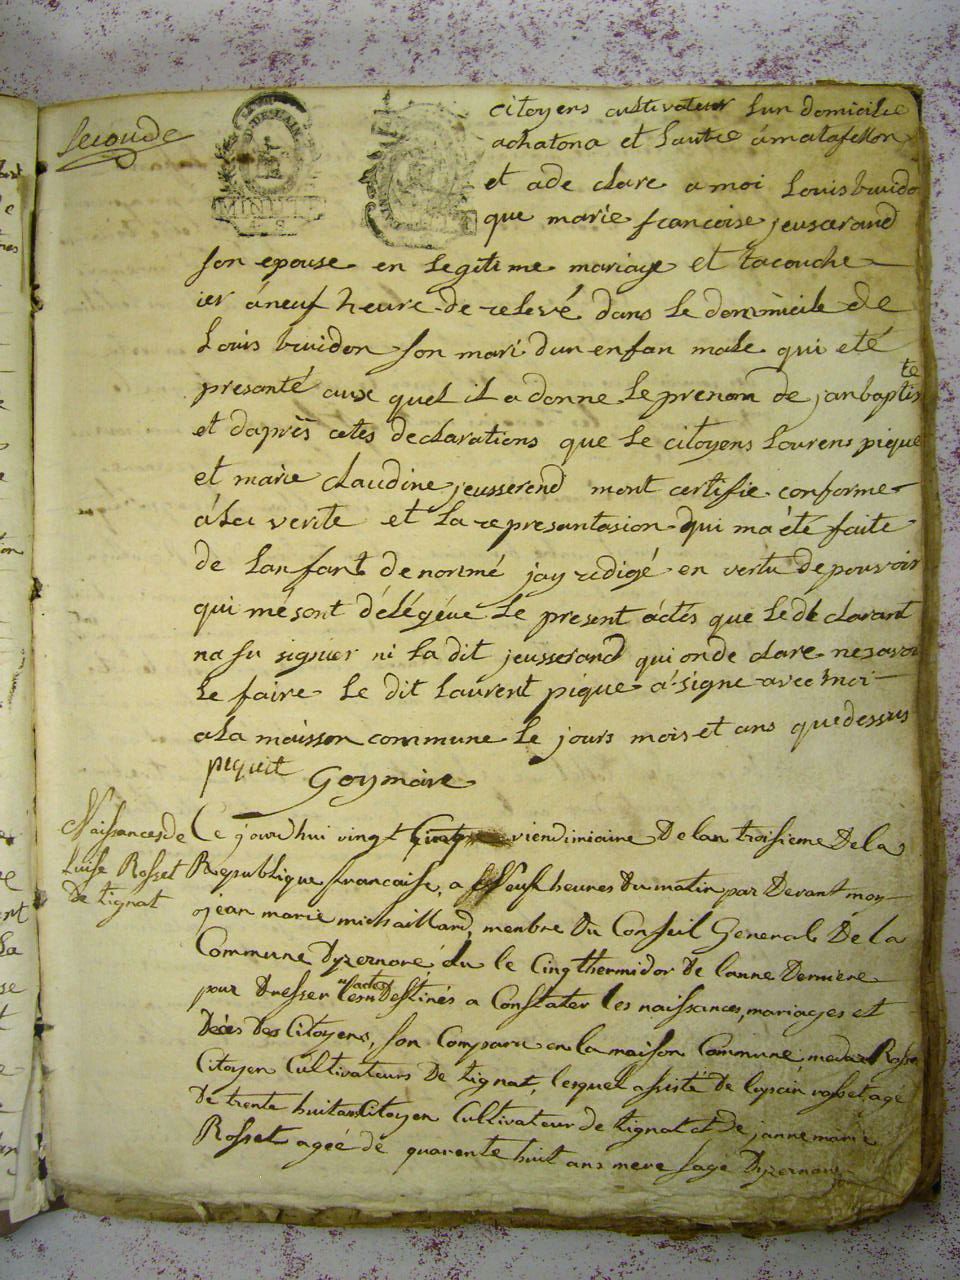 seconde
citoyens cultivateur l'un domicilie
achatona et lautre á matafellon
et a de clare a moi Louis buido
que marie francoise jeuserand
son epouse en legitime mariage et tacouche
ier á neuf heure de relevé dans le domicile de
Louis buidon son mari dun enfan male qui eté
presanté aux quel il a donne le prenom de jan baptiste
et daprès cetes declarations que le citoyens Lourens pique
et marie claudine jeusserend mont certifie conforme
á la verite et la represantasion qui ma été faite
de lanfant denommé jay redigé en vertu de pouvoir
qui mé sont délégéue le present actés que le de clarant
na su signier ni la dit jeusserand qui on de clare ne savoir
le faire le dit Laurent pique a signe avec moi
a la maisson commune le jours mois et ans que dessus
piquet Goy maire
Naissances de
Luise Rosset
de tignat
Ce jourdhui vingt viendimiaire De lan troisieme De la
Republique francaise, a Neuf heures Du matin par Devant moy
jean marie michaillard, menbre Du Conseil General De la
Commune Dyzernore, élu le Cinq thermidor De lanne Derniere
pour Dresser les actes Destinés a Constater les naissances, mariages et
Déces Des Citoyens, son Comparu en la maison Commune, Rosset
Citoyen Cultivateurs De tignat, lesquel assisté De rosset age
De trente huit ans Citoyen Cultivateur de tignat et de janne marie
Rosset ageé de quarente huit ans mere sage Dyzernore